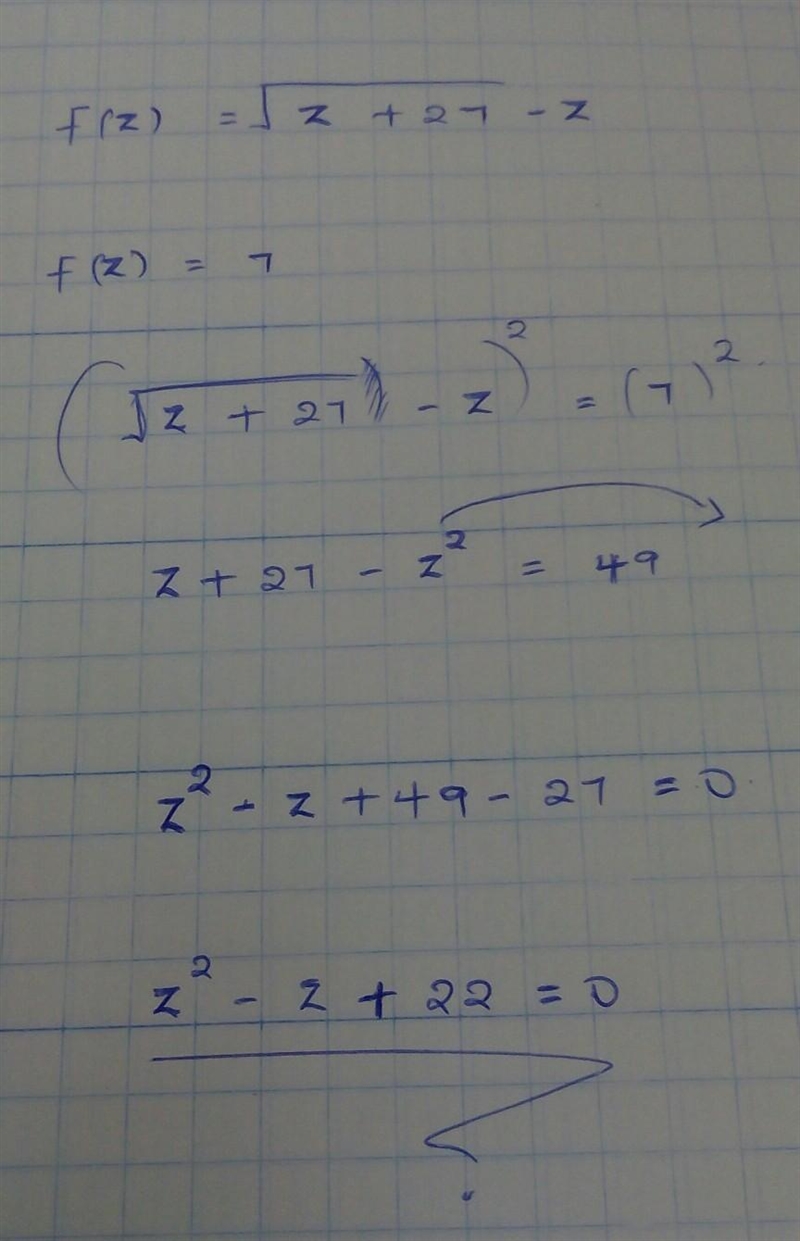 f(z) = √(z + 27) - z
f(z) = 7
(√(z + 27) - z)² = (7)²
z + 27 - z² = 49
z² - z + 49 - 27 = 0
z² - z + 22 = 0
?